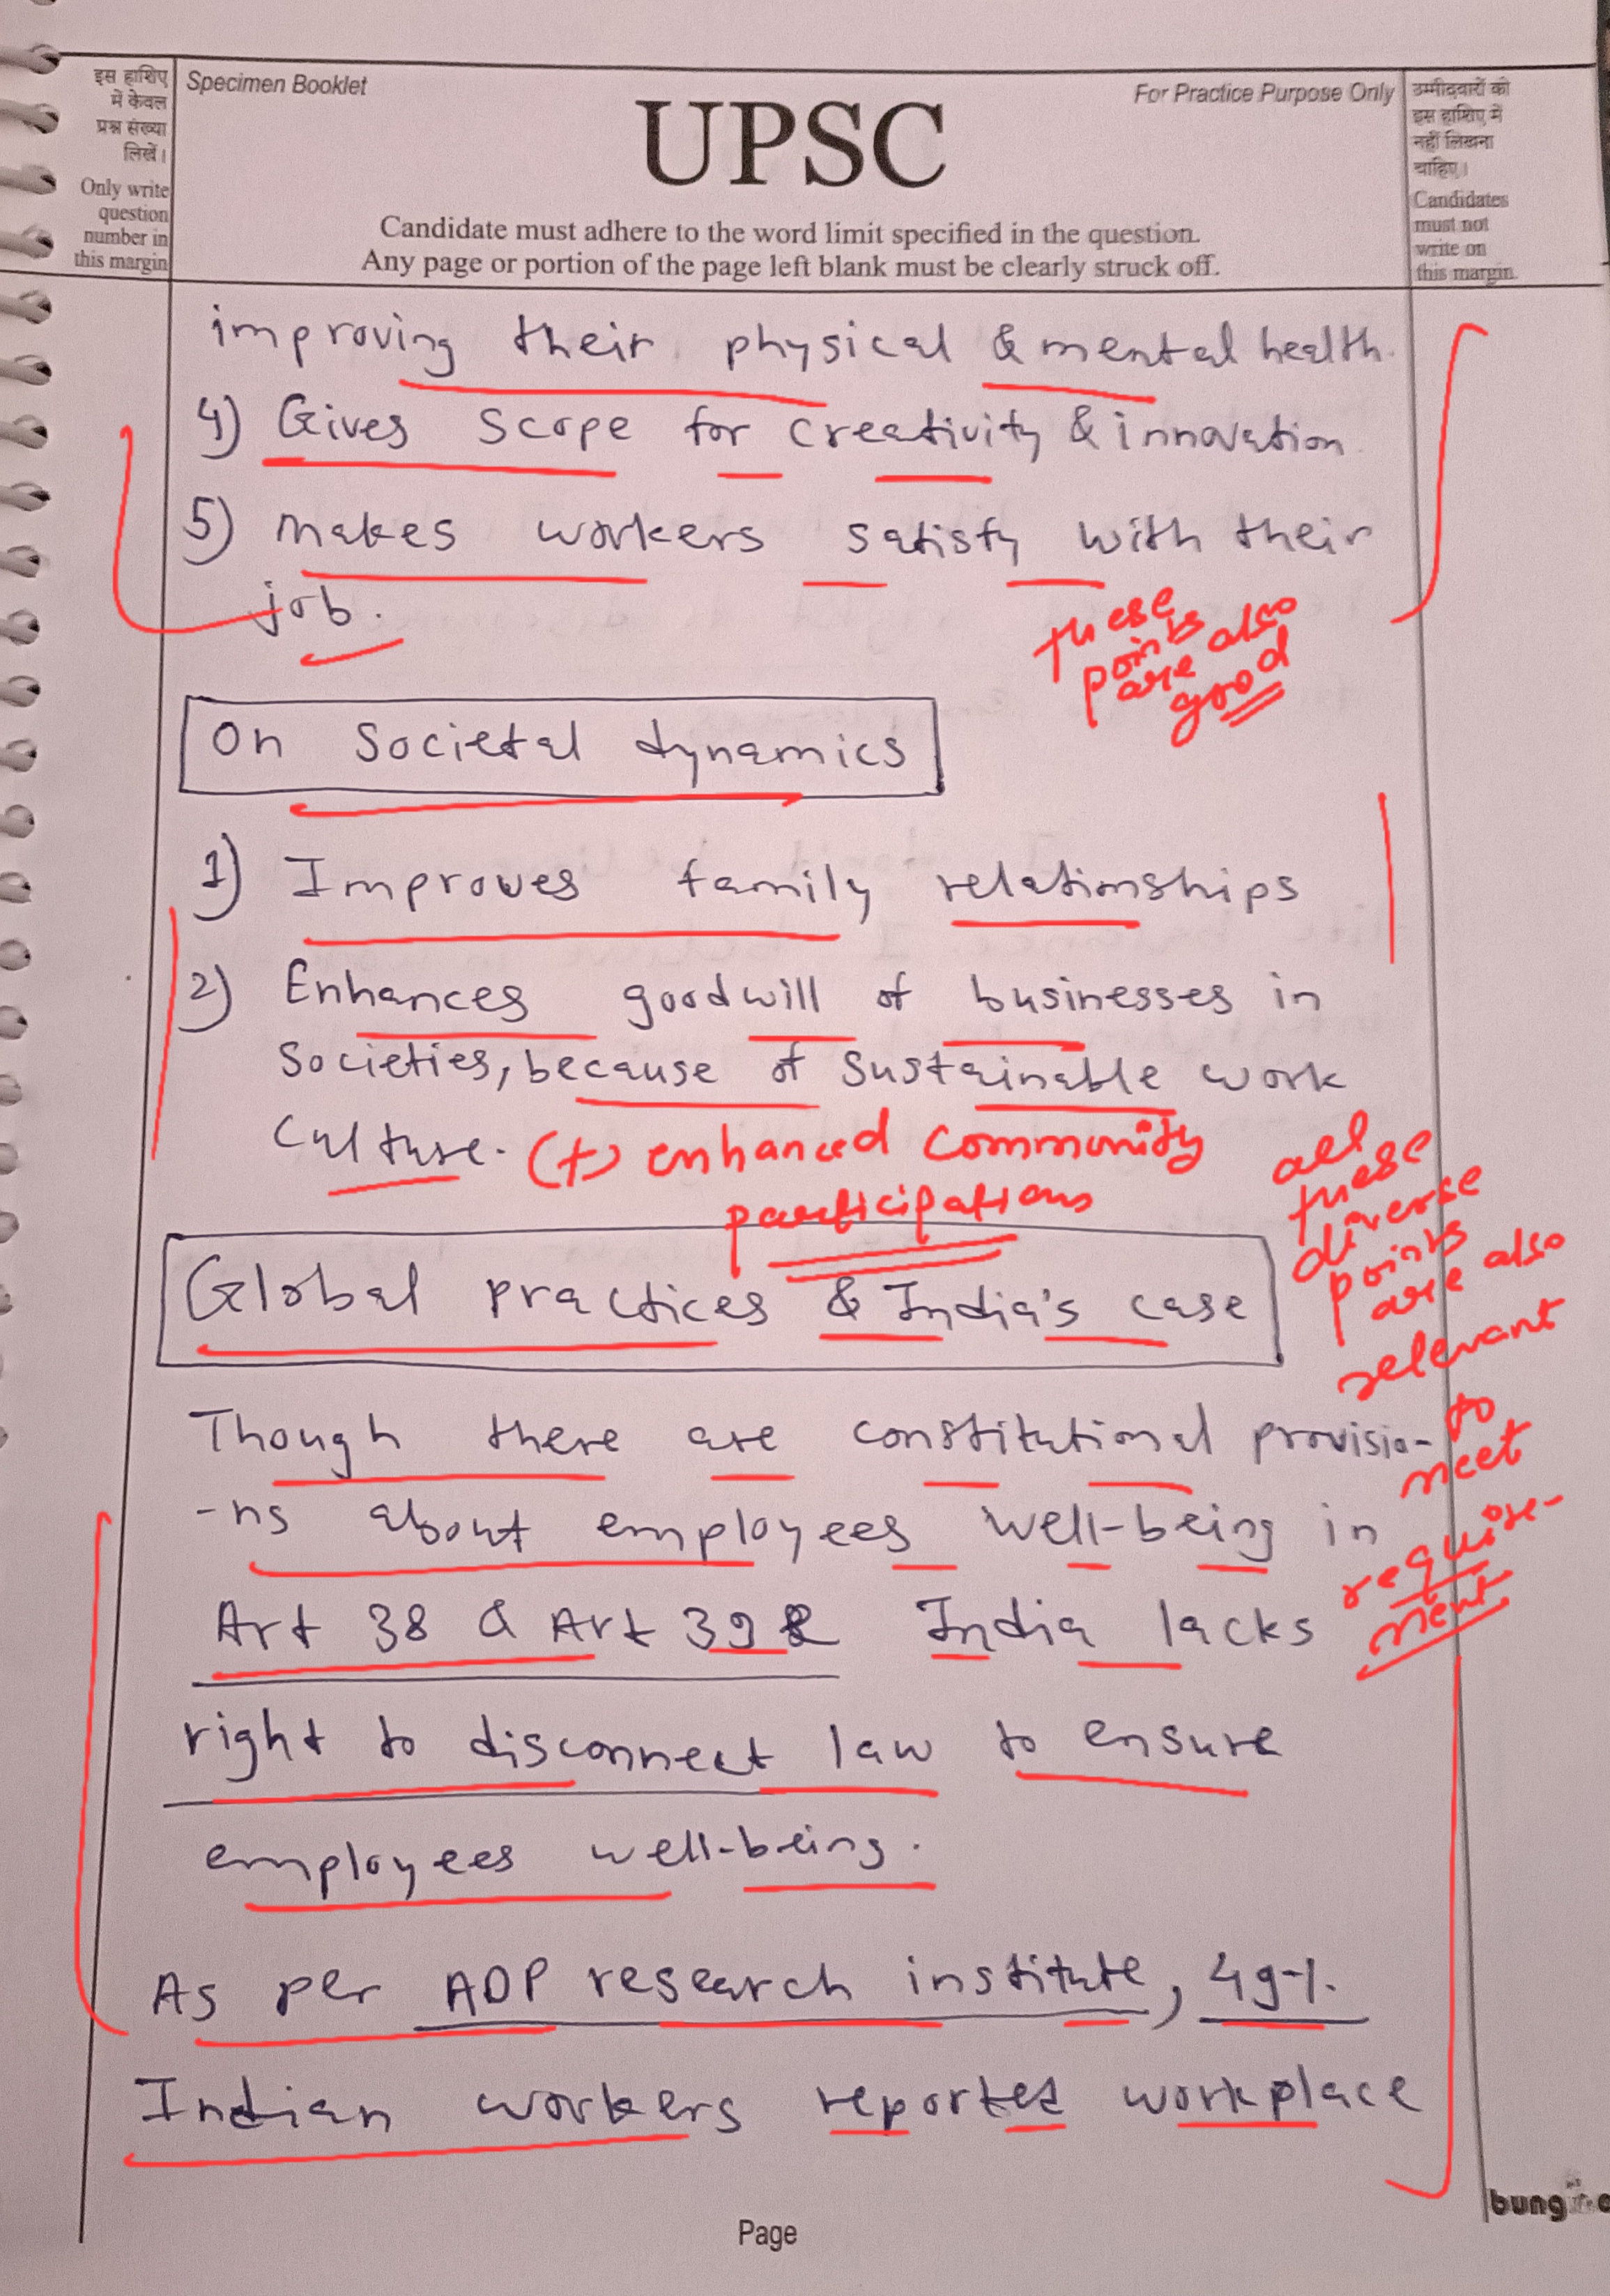 इस हाशिए
में केवल
प्रश्न संख्या
लिखें।
Only write
question
number in
this margin
Specimen Booklet
UPSC
For Practice Purpose Only
Candidate must adhere to the word limit specified in the question.
Any page or portion of the page left blank must be clearly struck off.
उम्मीदवारों को
इस हाशिए में
नहीं लिखना
चाहिए।
Candidates
must not
write on
this margin.
improving their physical & mental health.
4) Gives scope for creativity & innovation.
5) makes workers satisfy with their
job.
These
points
are also
good
On Societal dynamics
1) Improves family relationships
2) Enhances goodwill of businesses in
Societies, because of sustainable work
culture. (+) enhanced community
participations
all
these
diverse
points
are also
relevant
to
meet
require-
ment
Global practices & India's case
Though there are constitutional provisio-
-ns about employees well-being in
Art 38 & Art 39 India lacks
right to disconnect law to ensure
employees well-being.
As per ADP research institute, 49%
Indian workers reported workplace
Page